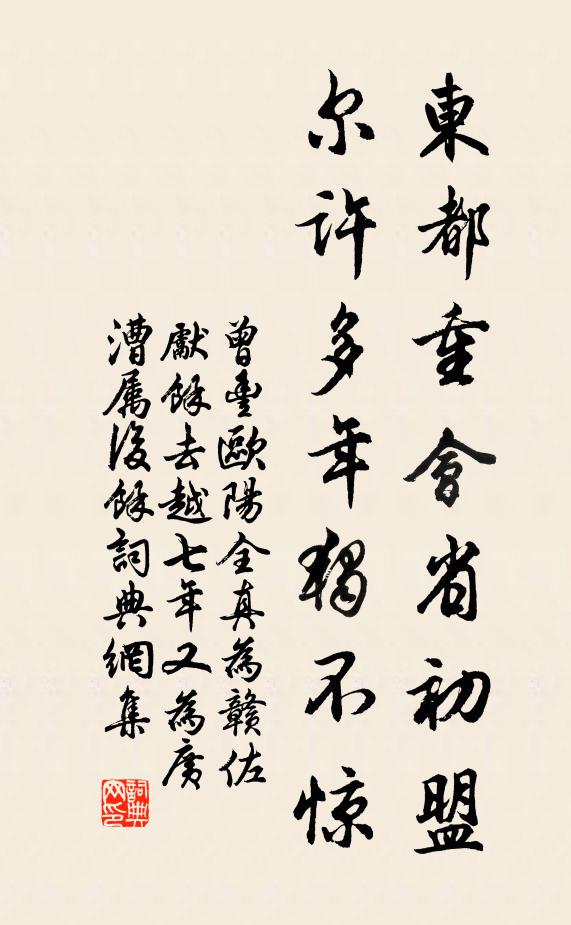 東都重會省初盟
尔許多年獨不惊
曾豊歐陽全真為贛佐
獻餘去越七年又為廣
漕属後餘詞典網集
詞典网印